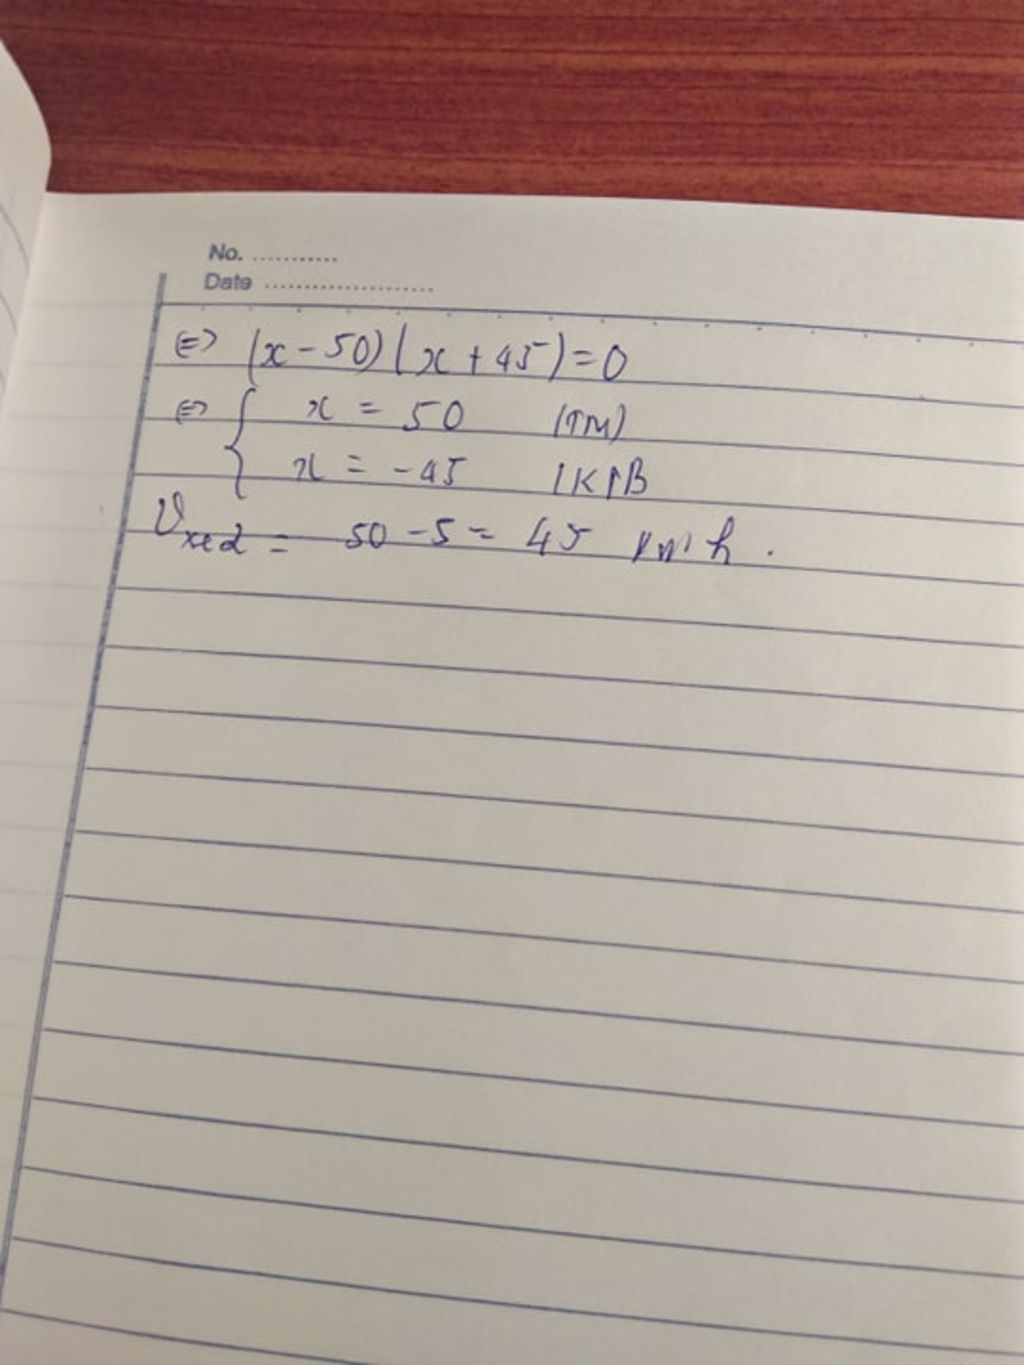 No. ...........
Date .....................
⇔ (x - 50)(x + 45) = 0
⇔ { x = 50 (TM)
x = -45 (KTB
Vxe2 = 50 - 5 = 45 km/h.